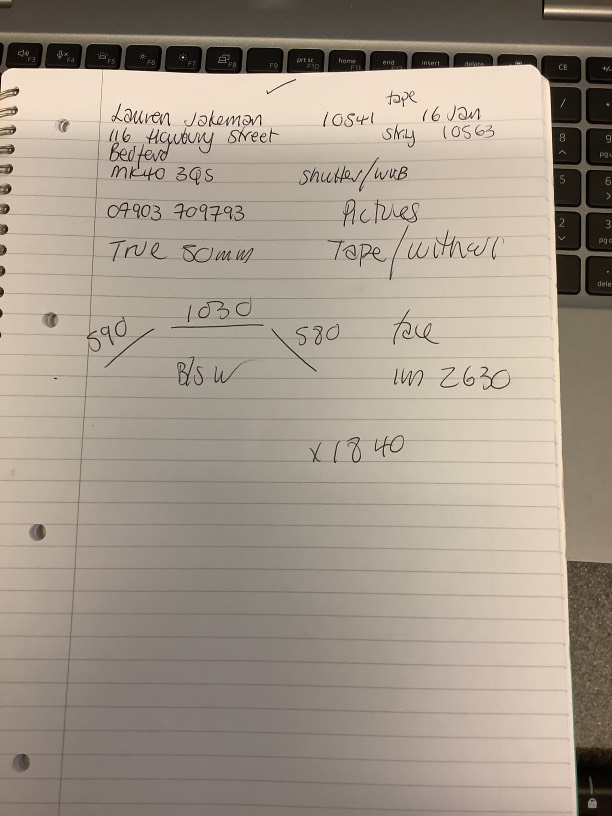 tape
Lauren Jakeman 10541 16 Jan
116 Street stry 10563
Bedford
MK40 3QS shutter/WUB
07903 709793 Pictures
True 50mm Tape/
1030
590 580 face
B/S W 2630
x 1840
F3 F4 F5 F6 F7 F8 F9 prt sc F10 home F11 end F12 insert delete CE
/
8
5
2